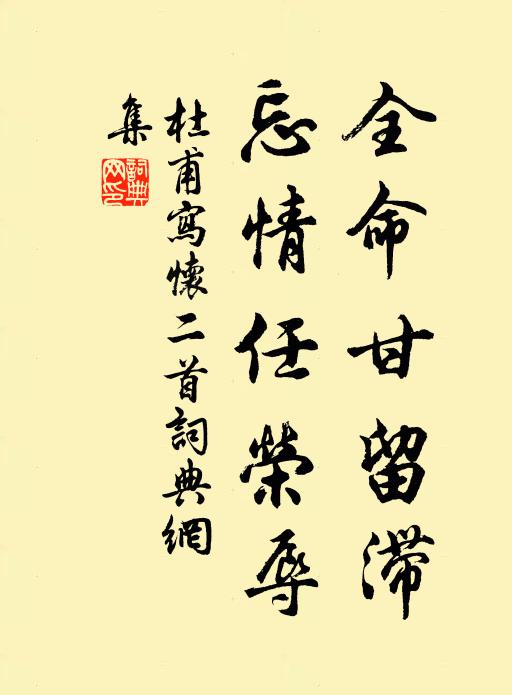 全命甘留滯
忘情任榮辱
杜甫寫懷二首詞典網
集
詞典
网印